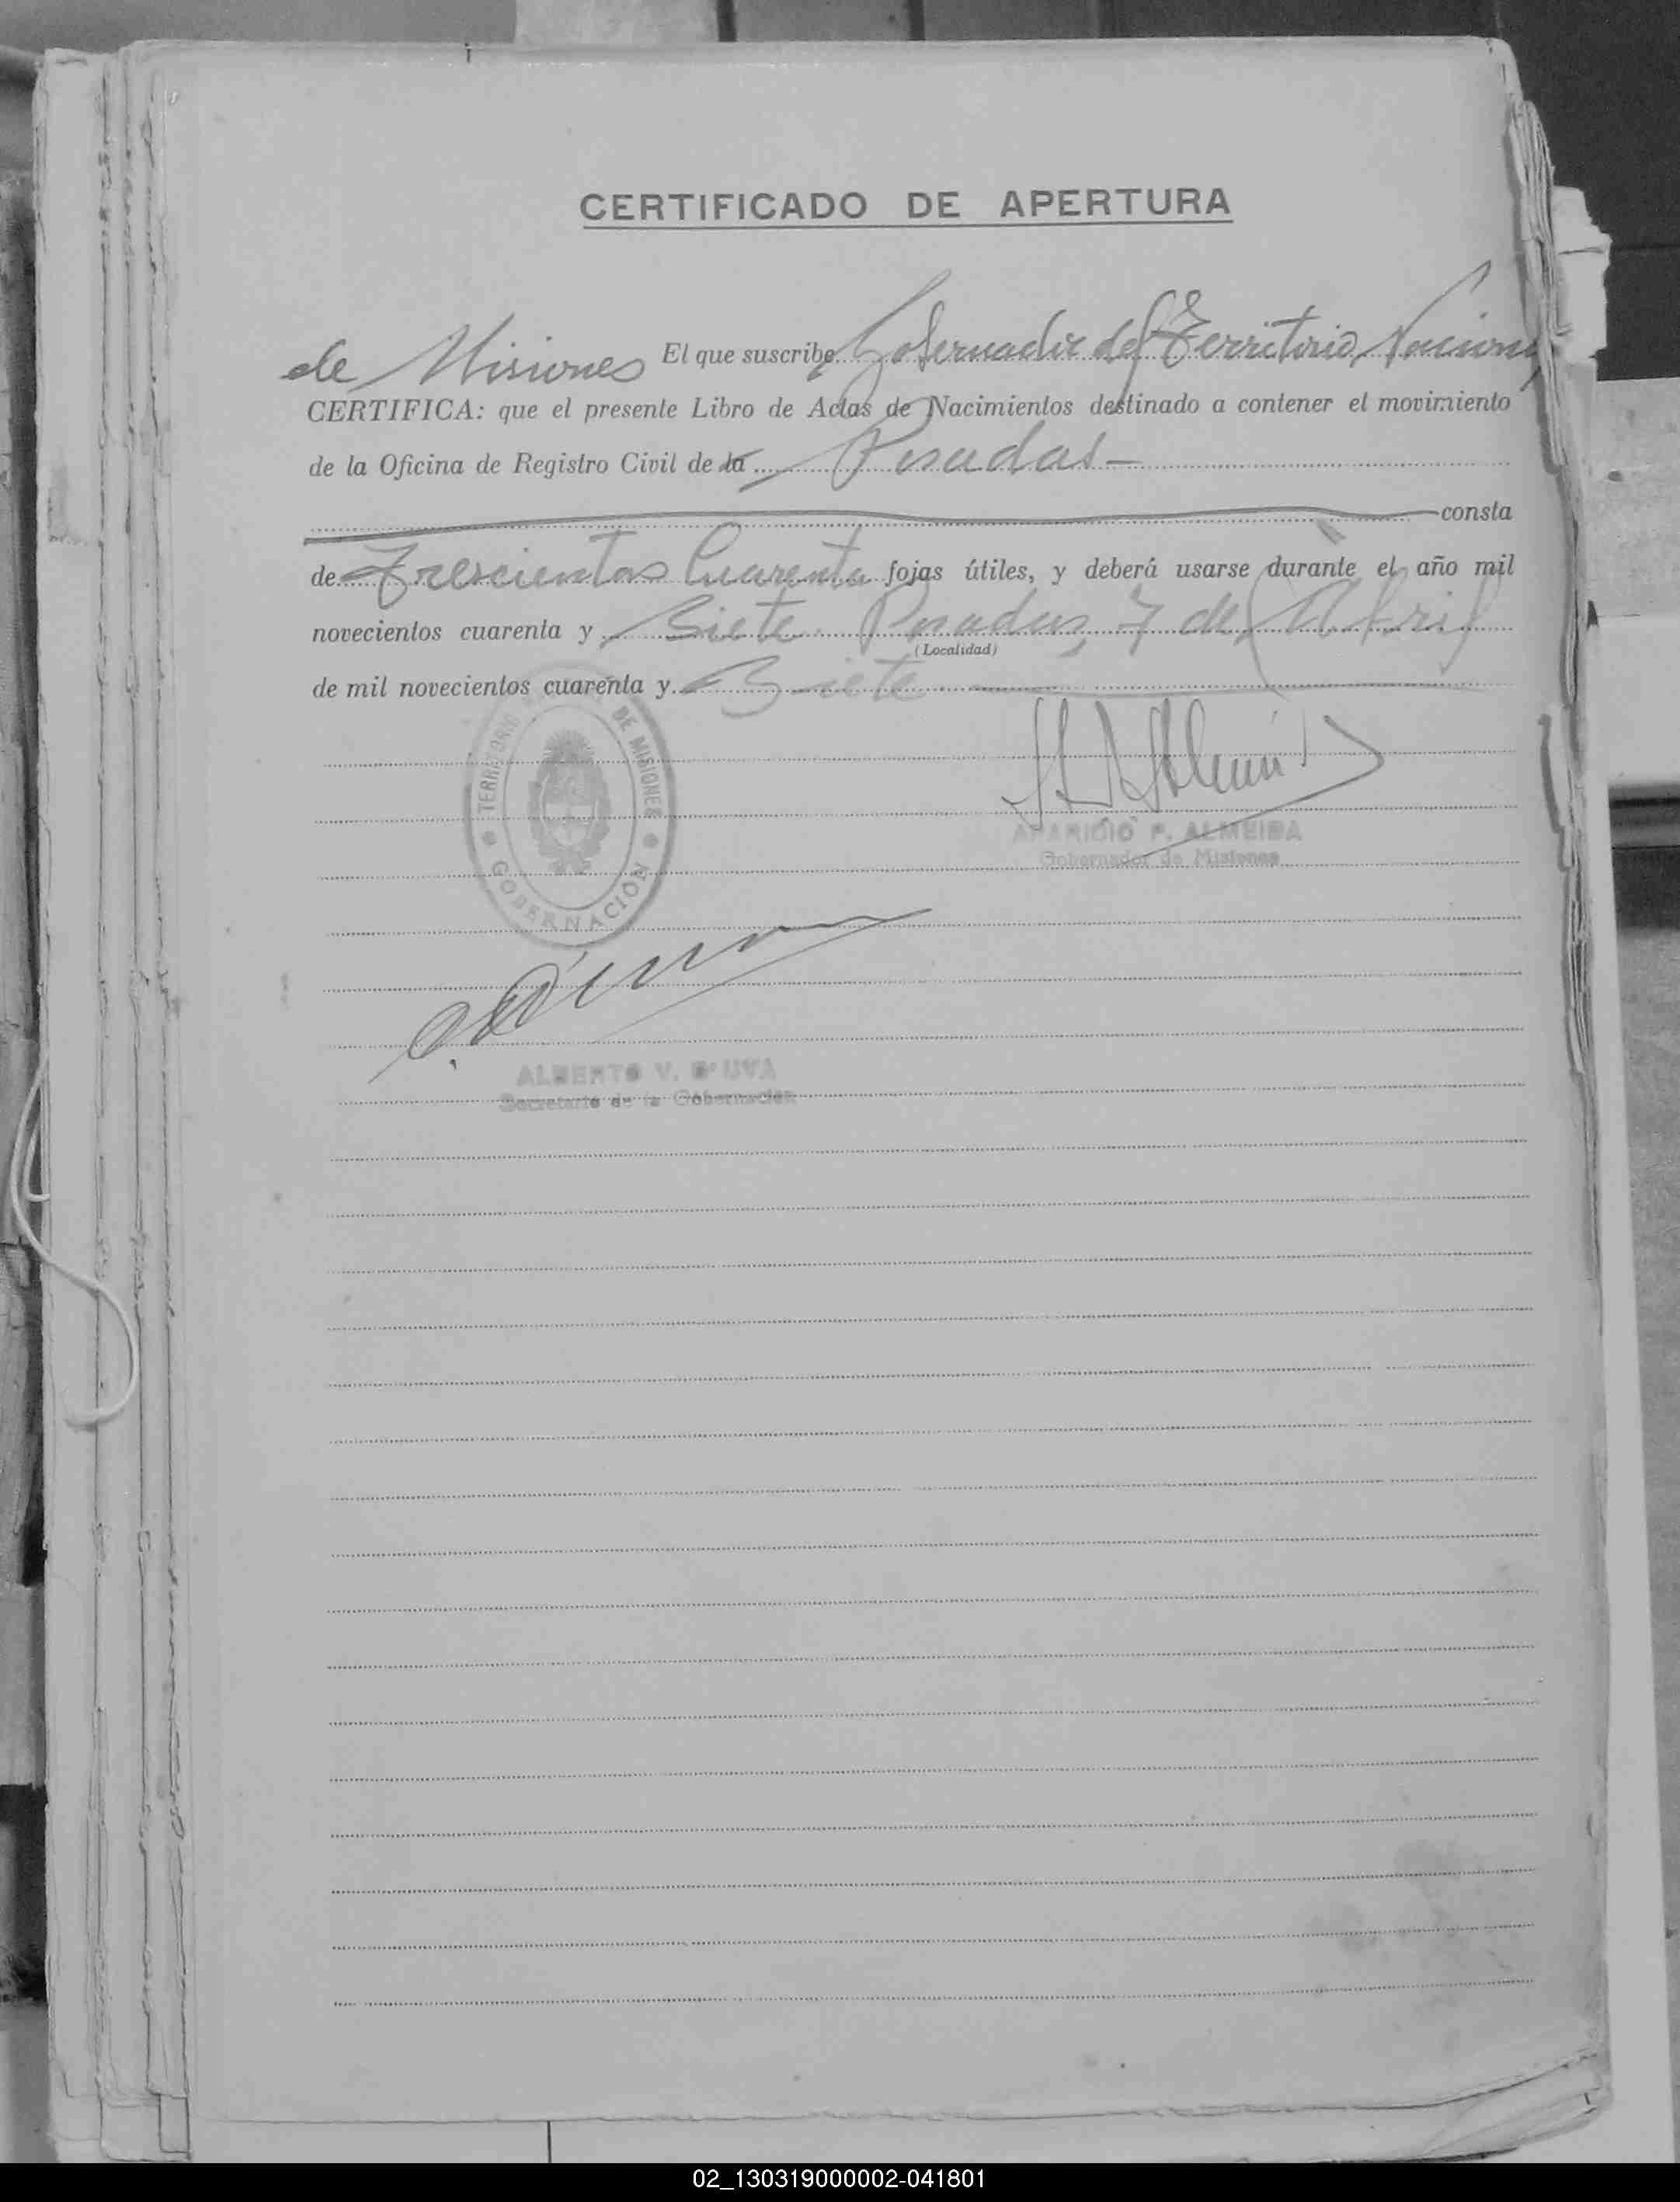 CERTIFICADO DE APERTURA
El que suscribe Gobernador del Territorio Nacional
de Misiones
CERTIFICA: que el presente Libro de Actas de Nacimientos destinado a contener el movimiento
de la Oficina de Registro Civil de la Posadas-
consta
de Trescientas Cuarenta fojas útiles, y deberá usarse durante el año mil
novecientos cuarenta y Siete. Posadas, 7 de Abril
(Localidad)
de mil novecientos cuarenta y Siete
TERRITORIO DE MISIONES
GOBERNACIÓN
APARICIO P. ALMEIDA
Gobernador de Misiones
ALBERTO V. D'UVA
Secretario de la Gobernación
02_130319000002-041801